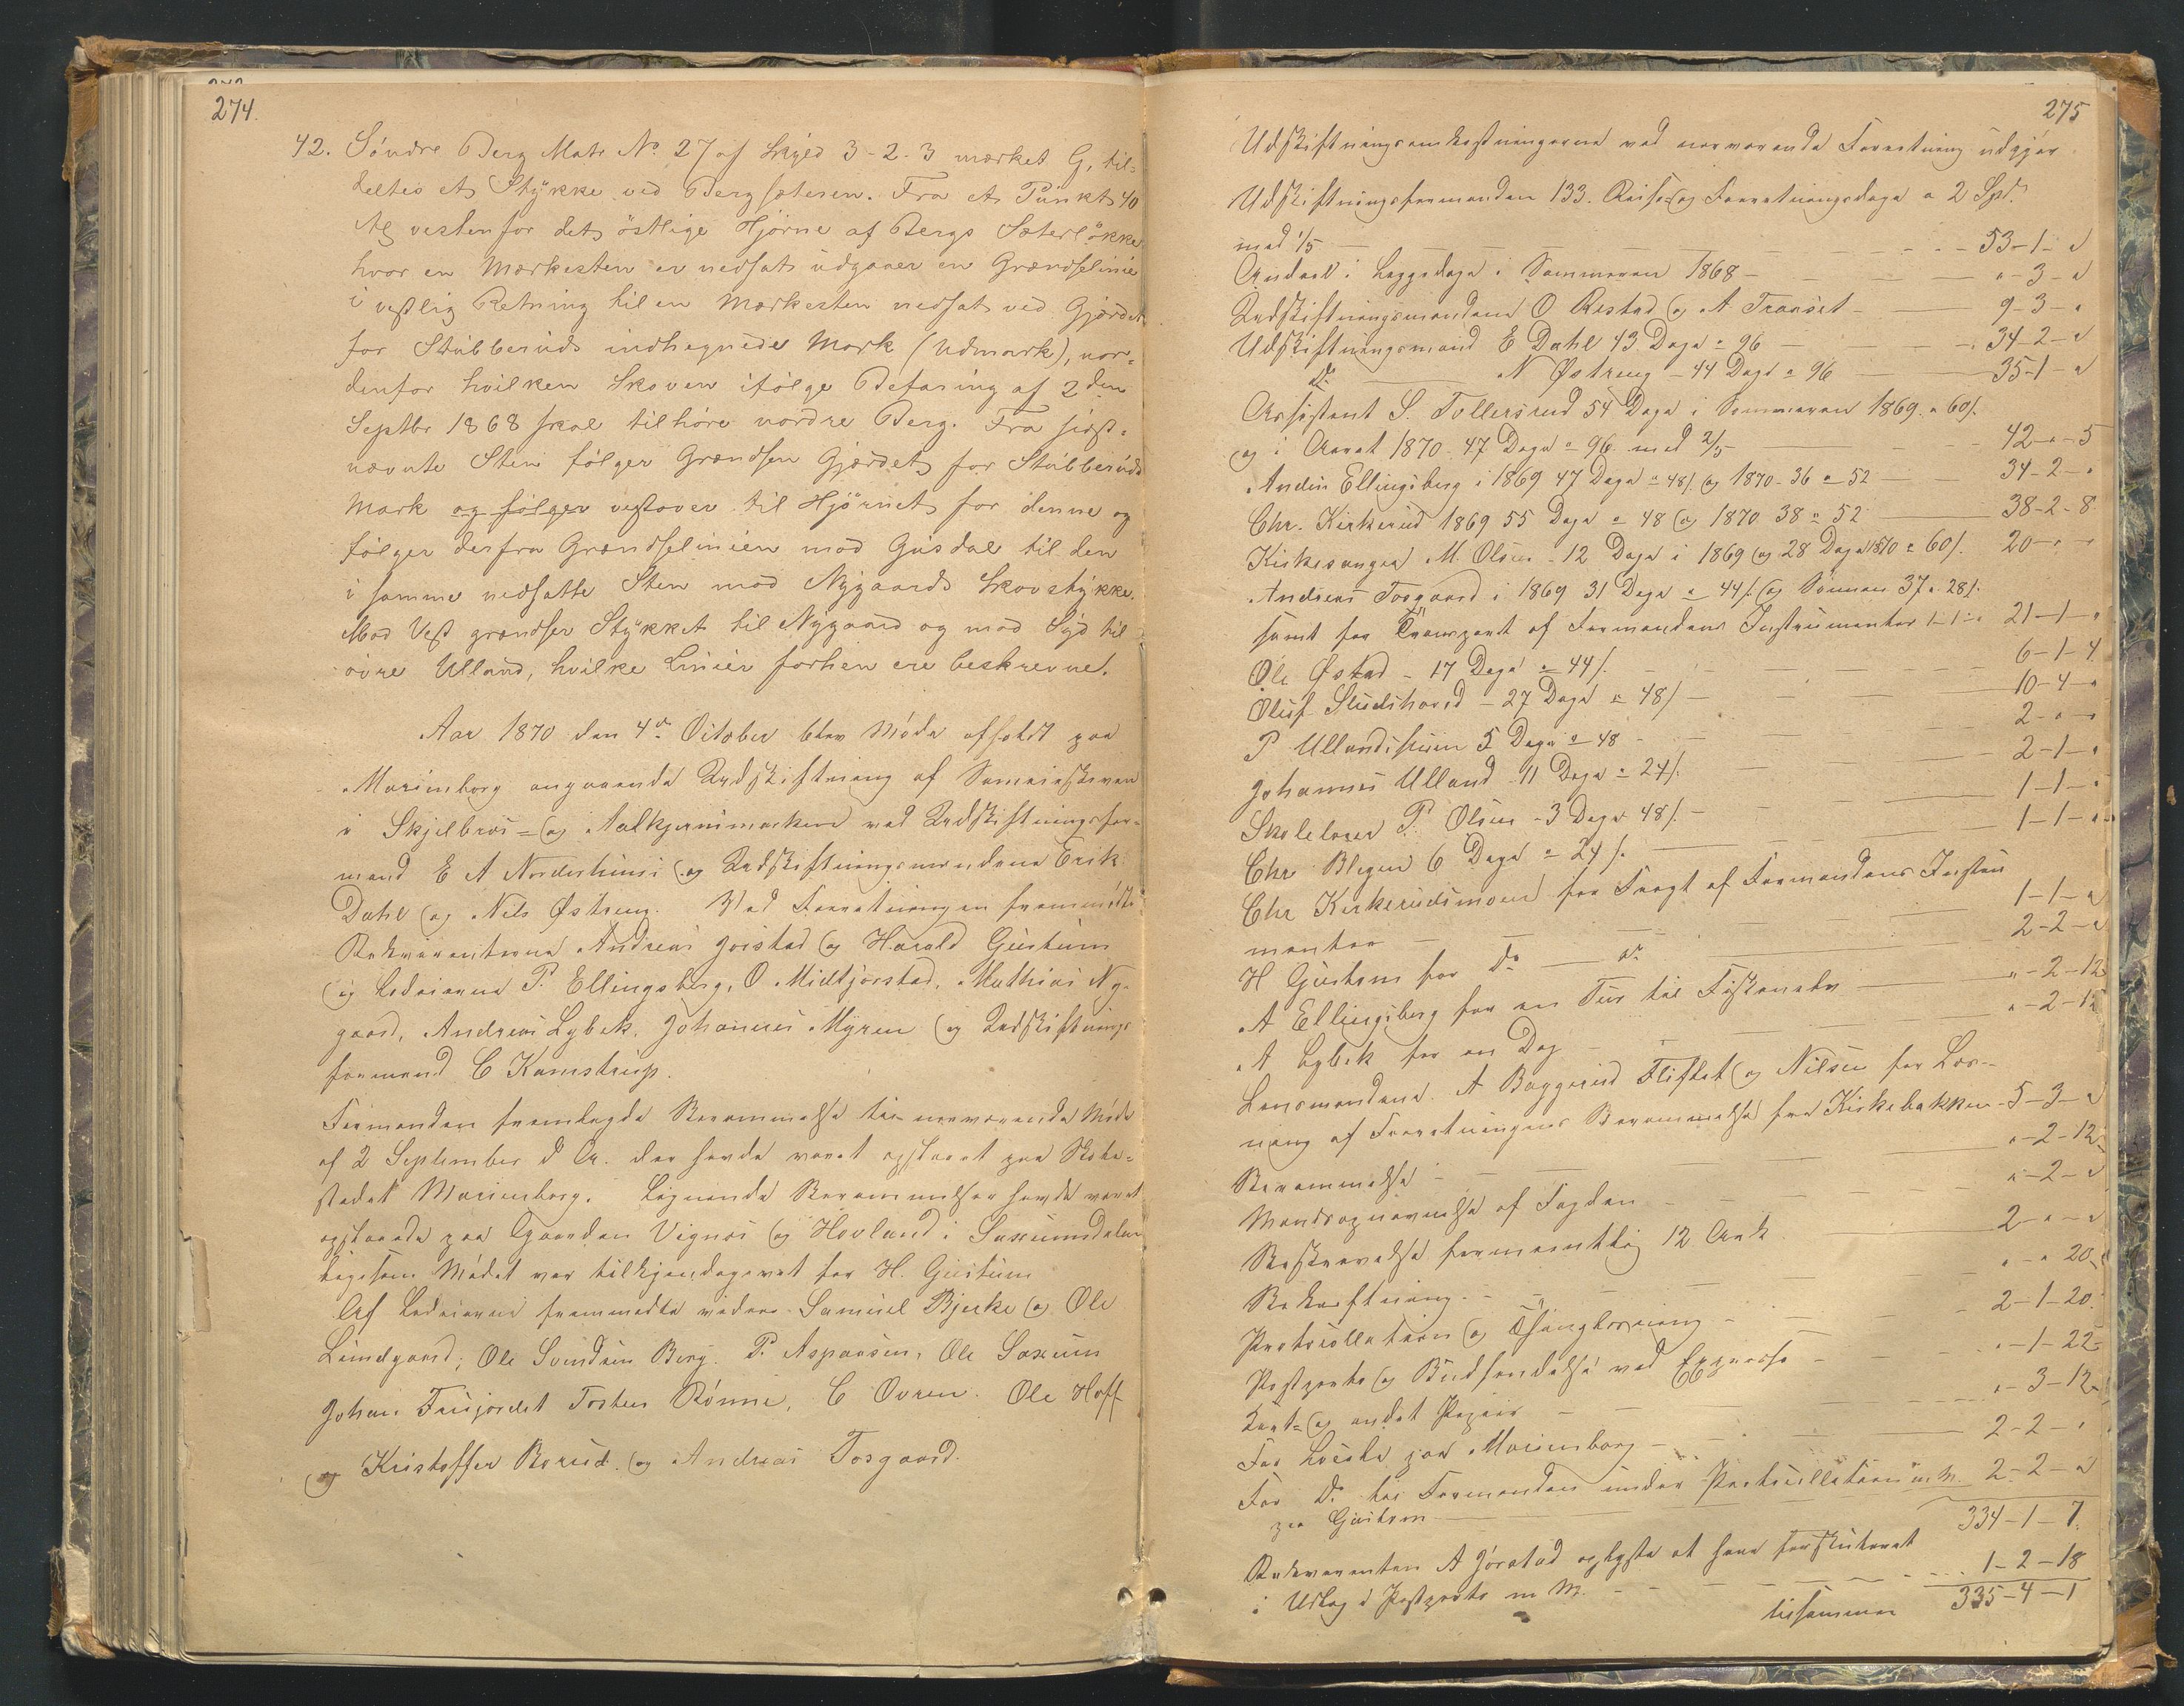 274.
42. Söndre Berg Matr No 27 af Skyld 3-2-3 mærket G, til-
deltes et Stykke ved Bergsæteren. Fra et Punkt 40
Al vestenfor det östlige Hjørne af Bergs Sæterlökke
hvor en Mærkesten er nedsat udgaaer en Grændselinie
i vestlig Retning til en Mærkesten nedsat ved Gjærdet
for Stubberuds indhegnede Mark (Udmark), nor-
denfor hvilken Skoven ifølge Befaring af 2den
Septbr 1868 skal tilhøre nordre Berg. Fra sidst-
nævnte Sten følger Grændsen Gjærdet for Stubberuds
Mark og følger vestover til Hjörnet for denne og
følger derfra Grændselinien mod Gusdal til den
i samme nedsatte Sten mod Nygaards Skovstykke.
Mod Vest grændser Stykket til Nygaard og mod Syd til
övre Ulland, hvilke Linier forhen ere beskrevne.
Aar 1870 den 4de October blev Møde afholdt paa
Marienborg angaaende Udskiftning af Sameieskoven
i Skjelbrei- og Aalkjernmarken ved Udskiftningsfor-
mand E A Norderhuus og Udskiftningsmændene Erik
Dahl og Nils Østreng. Ved Forretningen fremmødte
Rekvirenterne Andreas Jørstad og Harald Gustum
og Lodeierne P. Ellingsberg, O Midtjørstad, Mathias Ny-
gaard, Andreas Lybek, Johannes Myren og Udskiftnings
formand C Kamstrup.
Formanden fremlagde Berammelse til nærværende Møde
af 2 September d Ar. der havde været opslaaet paa Skole-
stedet Marienborg. Lignende Berammelser havde været
opslaaede paa Gaarden Vignes og Hovland i Saxumdalen
ligesom Mødet var tilkjendegivet for H. Gustum
Af Lodeierne fremmødte videre Samuel Bjerke og Ole
Lundgaard, Ole Svendsen Berg. P. Aspaasen, Ole Saxum
Johan Frisjordet Torsten Rønne, C Ovren. Ole Hoff
og Kristoffer Borud og Andreas Forgaard.
275
Udskiftningsomkostningerne ved nærværende Forretning udgjør
Udskiftningsformanden 133. Reise- og Forretningsdage a 2 Spd.
med 1/5 — 53-1-"
Andeel i Læggedage i Sommeren 1868 — "-3-"
Udskiftningsmændene O Restad og A Traaset — 9-3-"
Udskiftningsmand E Dahl 43 Dage a 96 — 34-2-"
Do — N Østreng - 44 Dage a 96 — 35-1-"
Assistent S. Tollersrud 54 Dage i Sommeren 1869 a 60 s.
og i Aaret 1870 47 Dage a 96 med 2/5 — 42-"-5
Andrs Ellingsberg i 1869 47 Dage a 48 s. og 1870 - 36 a 52 — 34-2-"
Chr. Kirkerud 1869 55 Dage a 48 og 1870 38 a 52 — 38-2-8
Kirkesanger M. Olsen - 12 Dage i 1869 og 28 Dage 1870 a 60 s. 20-"-"
Andreas Forgaard i 1869 31 Dage a 44 s. og Sønnen 37 a 28 s.
samt for Transport af Formandens Instrumenter 1-1-" 21-1-"
Ole Østad - 17 Dage a 44 s. — 6-1-4
Oluf Studshoved - 27 Dage a 48 s — 10-4-"
P Ullandshuen 5 Dage a 48 — 2-"-"
Johannes Ulland 11 Dage a 24 s. — 2-1-"
Skolelærer P. Olsen - 3 Dage 48 s. — 1-1-"
Chr Blegen 6 Dage a 24 s. — 1-1-"
Chr Kirkerudsmoen for Fragt af Formandens Instru
menter — 1-1-"
H Gustum for do — do — 2-2-"
A Ellingsberg for en Tur til Fiskenæstv — "-2-12
A Lybek for en Dag — "-2-12
Lensmændene A Baggerud Fliflet og Nilsen for Læs-
ning af Forretningens Berammelse fra Kirkebakken 5-3-"
Berammelse — "-2-12
Mandsopnævnelse af Fogden — "-2-"
Beskrivelse formeentlig 12 Ark — 2-"-"
Bekræftning — "-"-20
Protocollation og Thinglæsning — 2-1-20
Postporto og Budsendelse ved Expresse — "-1-22
Kart- og andet Papir — "-3-12
For Locale paa Marienborg — 2-2-"
For Do. hos Formanden under Protocollation m. M. 2-2-"
paa Gustum —
334-1-7.
Rekvirenten A Jørstad oplyste at have forskuteret
i Udlæg i Postporto m M. — 1-2-18
tilsammen 335-4-1